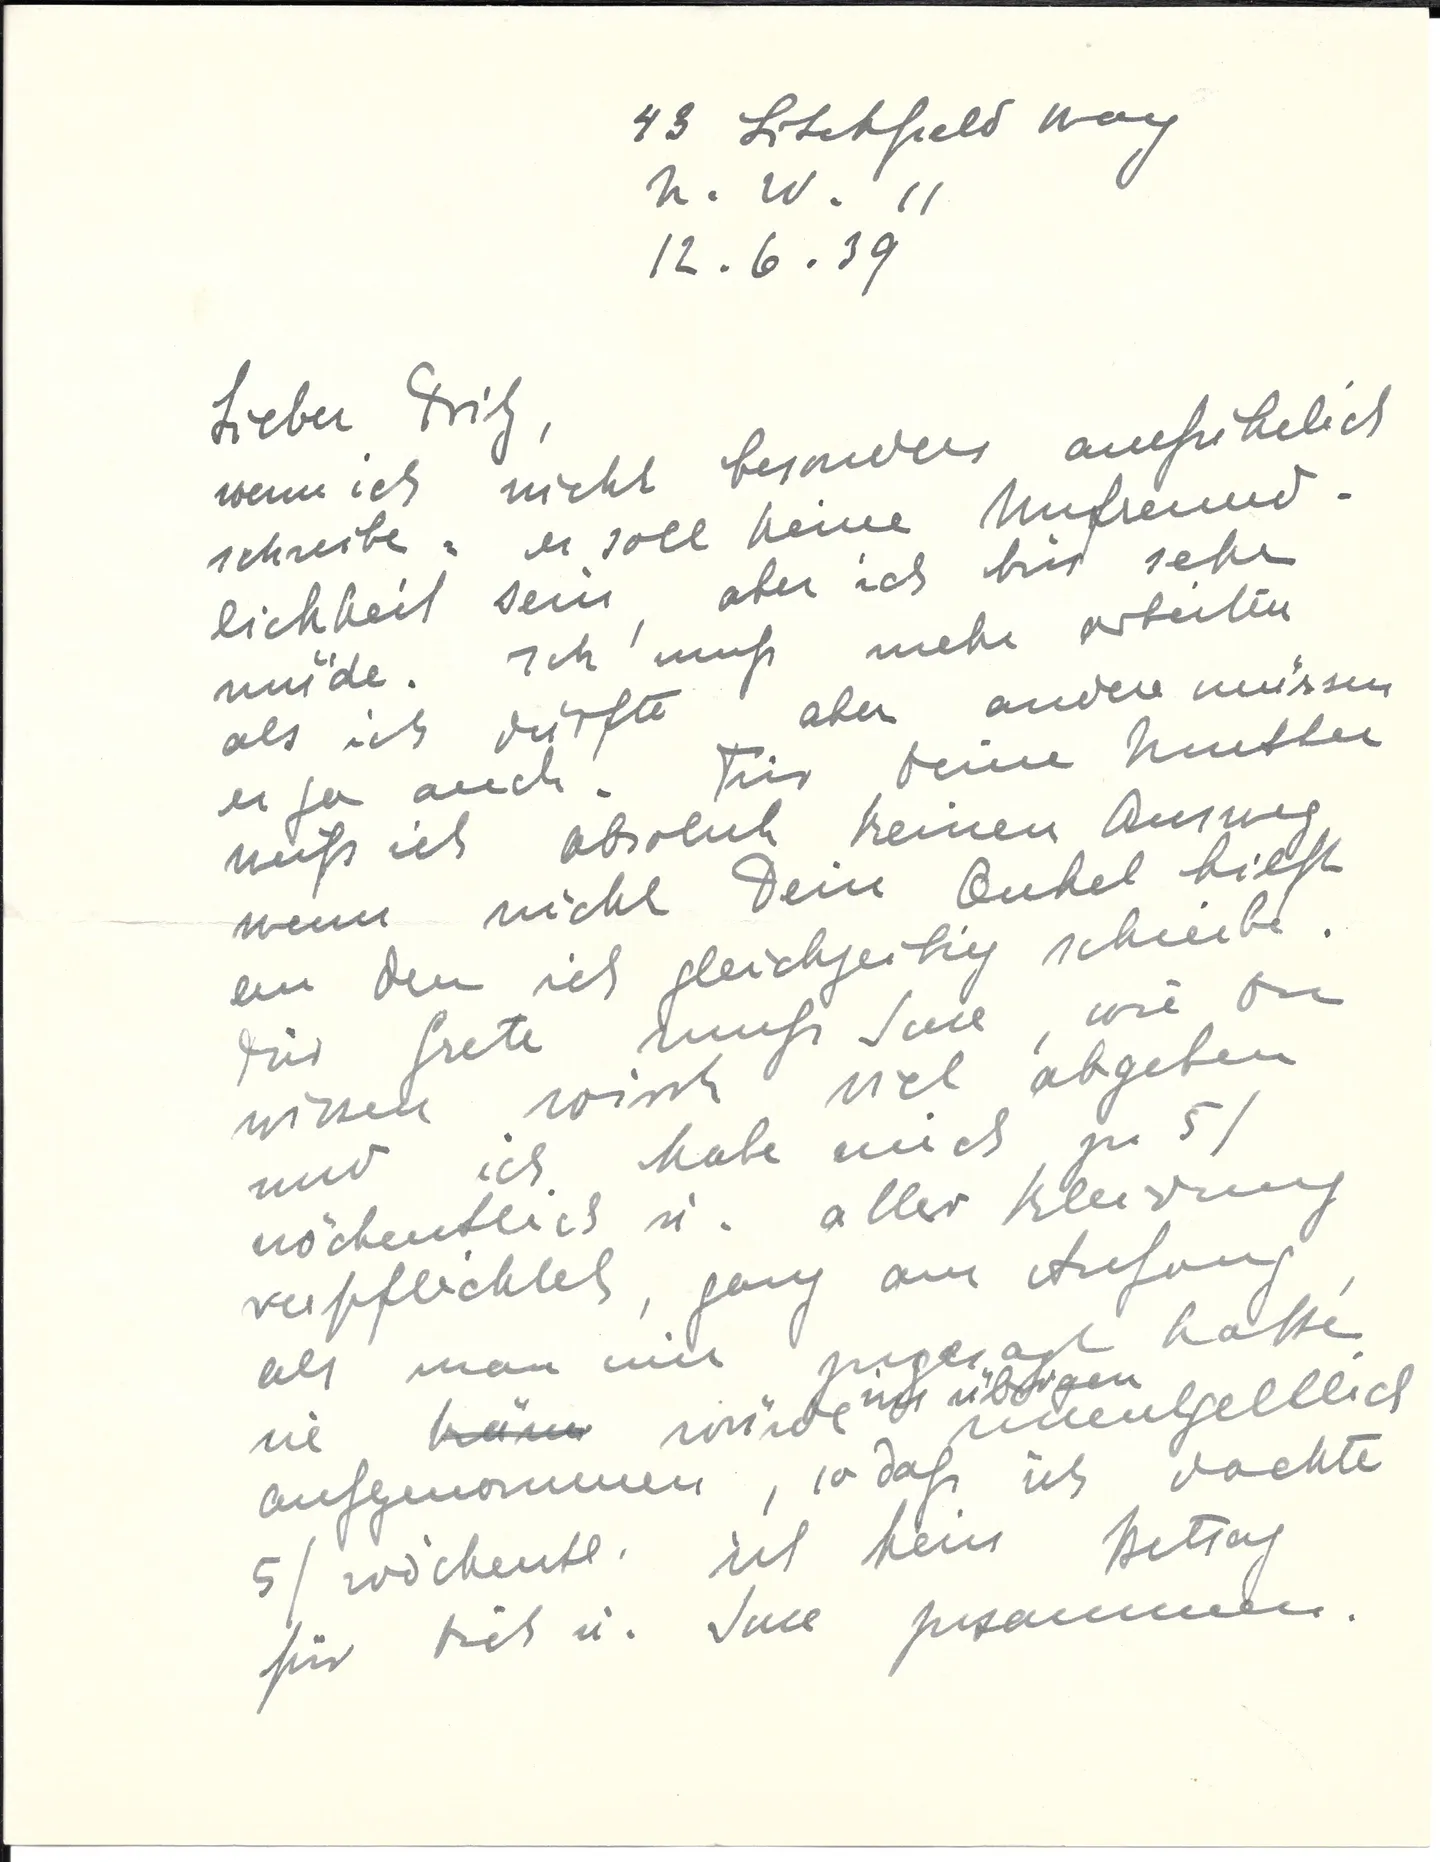 43 Litchfield Way
N. W. 11
12.6.39
Lieber Fritz,
wenn ich nicht besonders ausführlich
schreibe - es soll keine Unfreund-
lichkeit sein, aber ich bin sehr
müde. Ich muß mehr arbeiten
als ich dürfte aber andere müssen
es ja auch. Für Deine Mutter
weiß ich absolut keinen Ausweg
wenn nicht Dein Onkel hilft
an den ich gleichzeitig schreibe.
Für Grete muß Suse, wie Du
wissen wirst viel abgeben
und ich habe mich zu 5/
wöchentlich u. aller Kleidung
verpflichtet, ganz am Anfang,
als man mir zugesagt hatte,
sie käme würde im übrigen unentgeltlich
aufgenommen, so daß ich dachte
5/ wöchentl. ist kein Betrag
für Dich u. Suse zusammen.